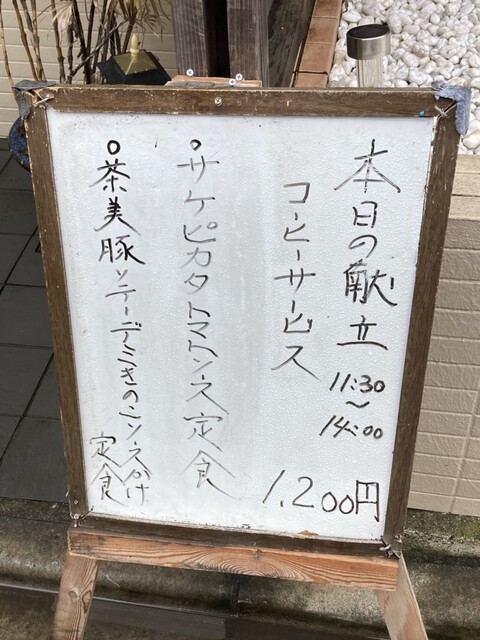 本日の献立 11:30~14:00
コーヒーサービス
1,200円
○サケピカタトマトソース定食
○茶美豚ソテーデミきのこソースかけ
定食